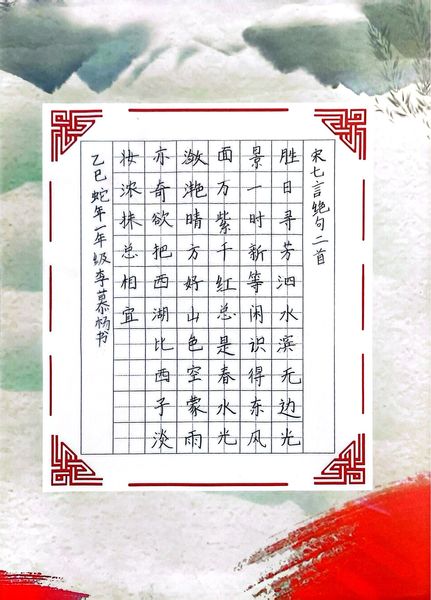 宋七言绝句二首
胜日寻芳泗水滨无边光
景一时新等闲识得东风
面万紫千红总是春水光
潋滟晴方好山色空蒙雨
亦奇欲把西湖比西子淡
妆浓抹总相宜
乙巳蛇年一年级李慕杨书